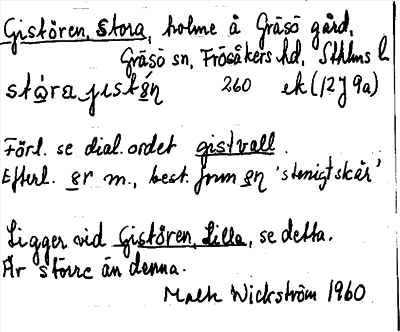 Gistören, Stora, holme å Gräsö gård,
Gräsö sn, Frösåkers hd, Sthlms l.
stọ́ra jistö̀n 260 ek (12J 9a)
Förl. se dial. ordet gistvall.
Efterl. ör m., best. form ön 'stenigt skär'
Ligger vid Gistören, Lilla, se detta.
Är större än denna.
Wickström 1960